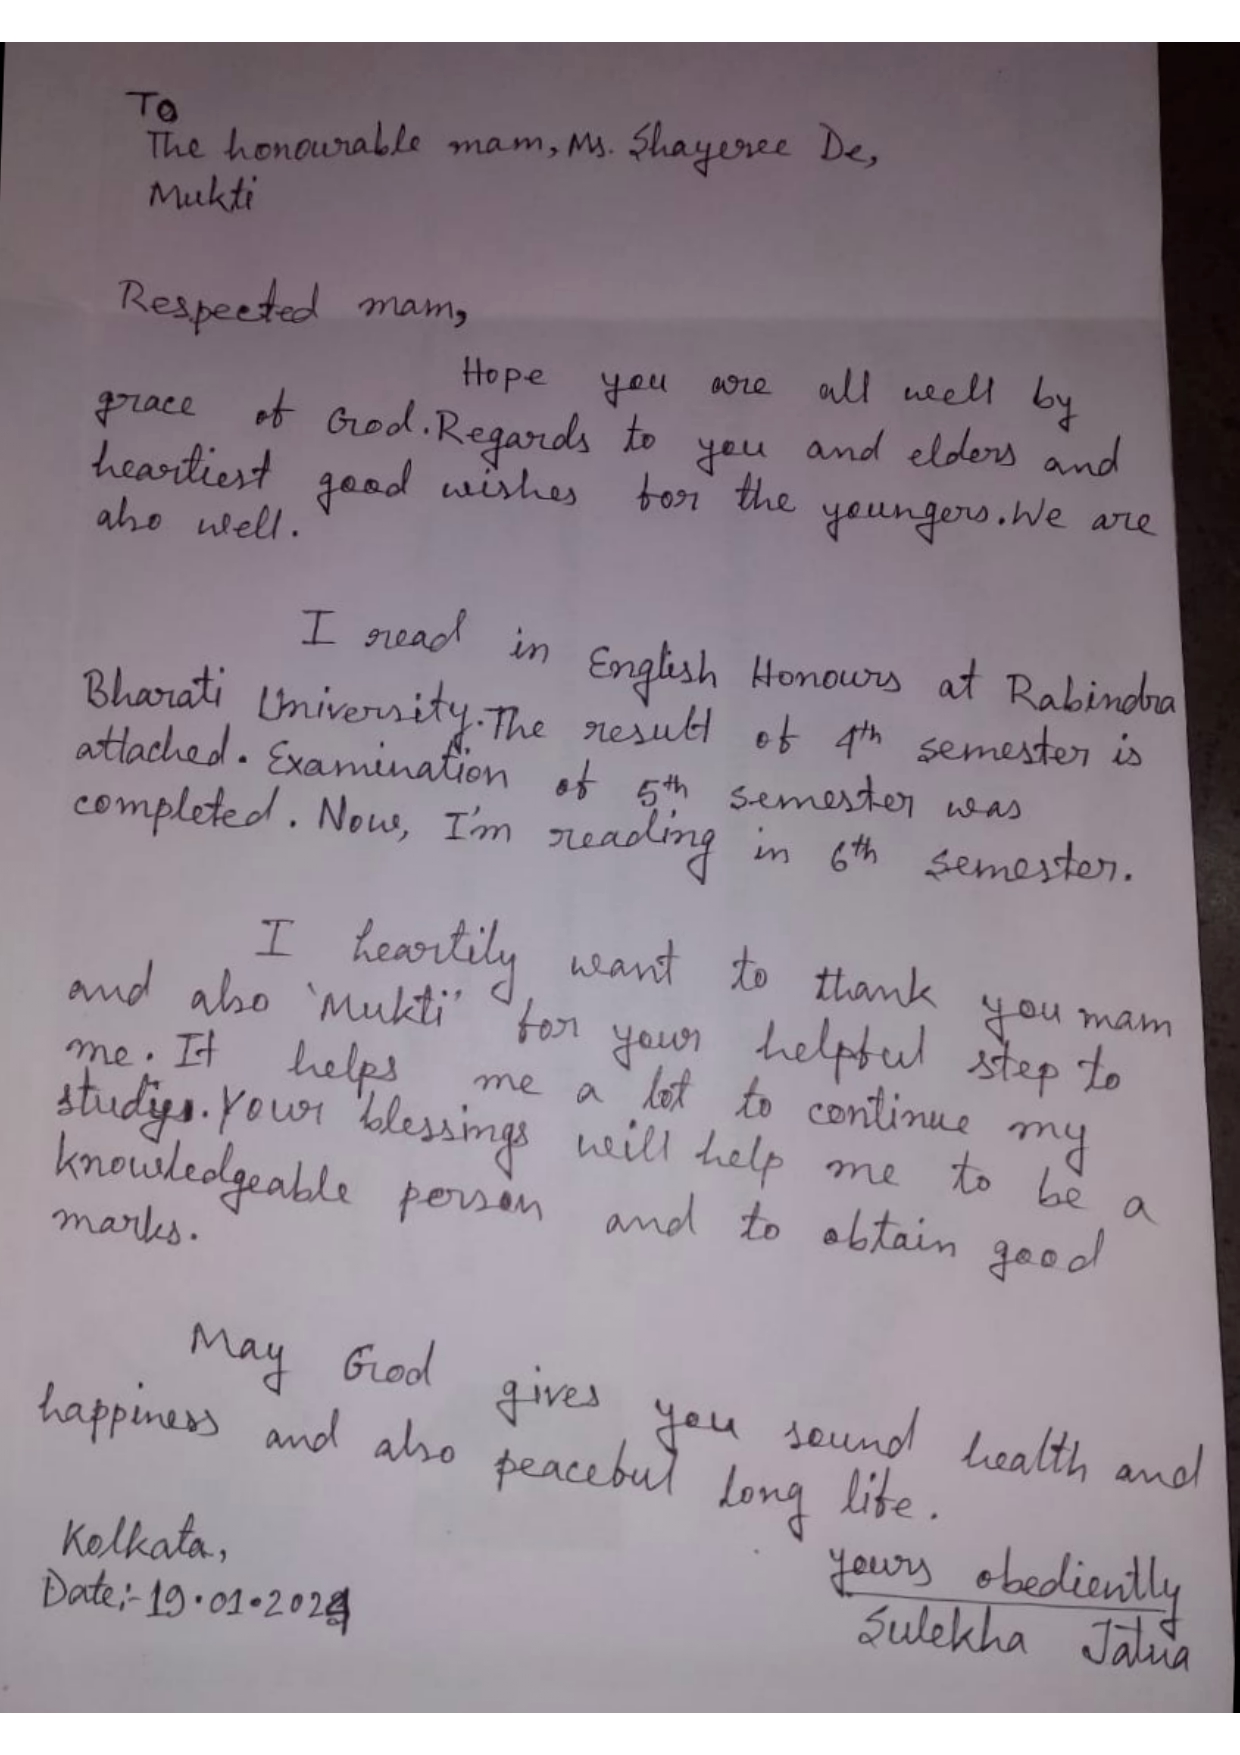 To
The honourable mam, Ms. Shayeree De,
Mukti
Respected mam,
Hope you are all well by
grace of God. Regards to you and elders and
heartiest good wishes for the youngers. We are
also well.
I read in English Honours at Rabindra
Bharati University. The result of 4th semester is
attached. Examination of 5th semester was
completed. Now, I'm reading in 6th semester.
I heartily want to thank you mam
and also 'Mukti' for your helpful step to
me. It helps me a lot to continue my
studys. Your blessings will help me to be a
knowledgeable person and to obtain good
marks.
May God gives you sound health and
happiness and also peaceful long life.
Kolkata,
Date:- 19.01.2024
yours obediently
Sulekha Jatua